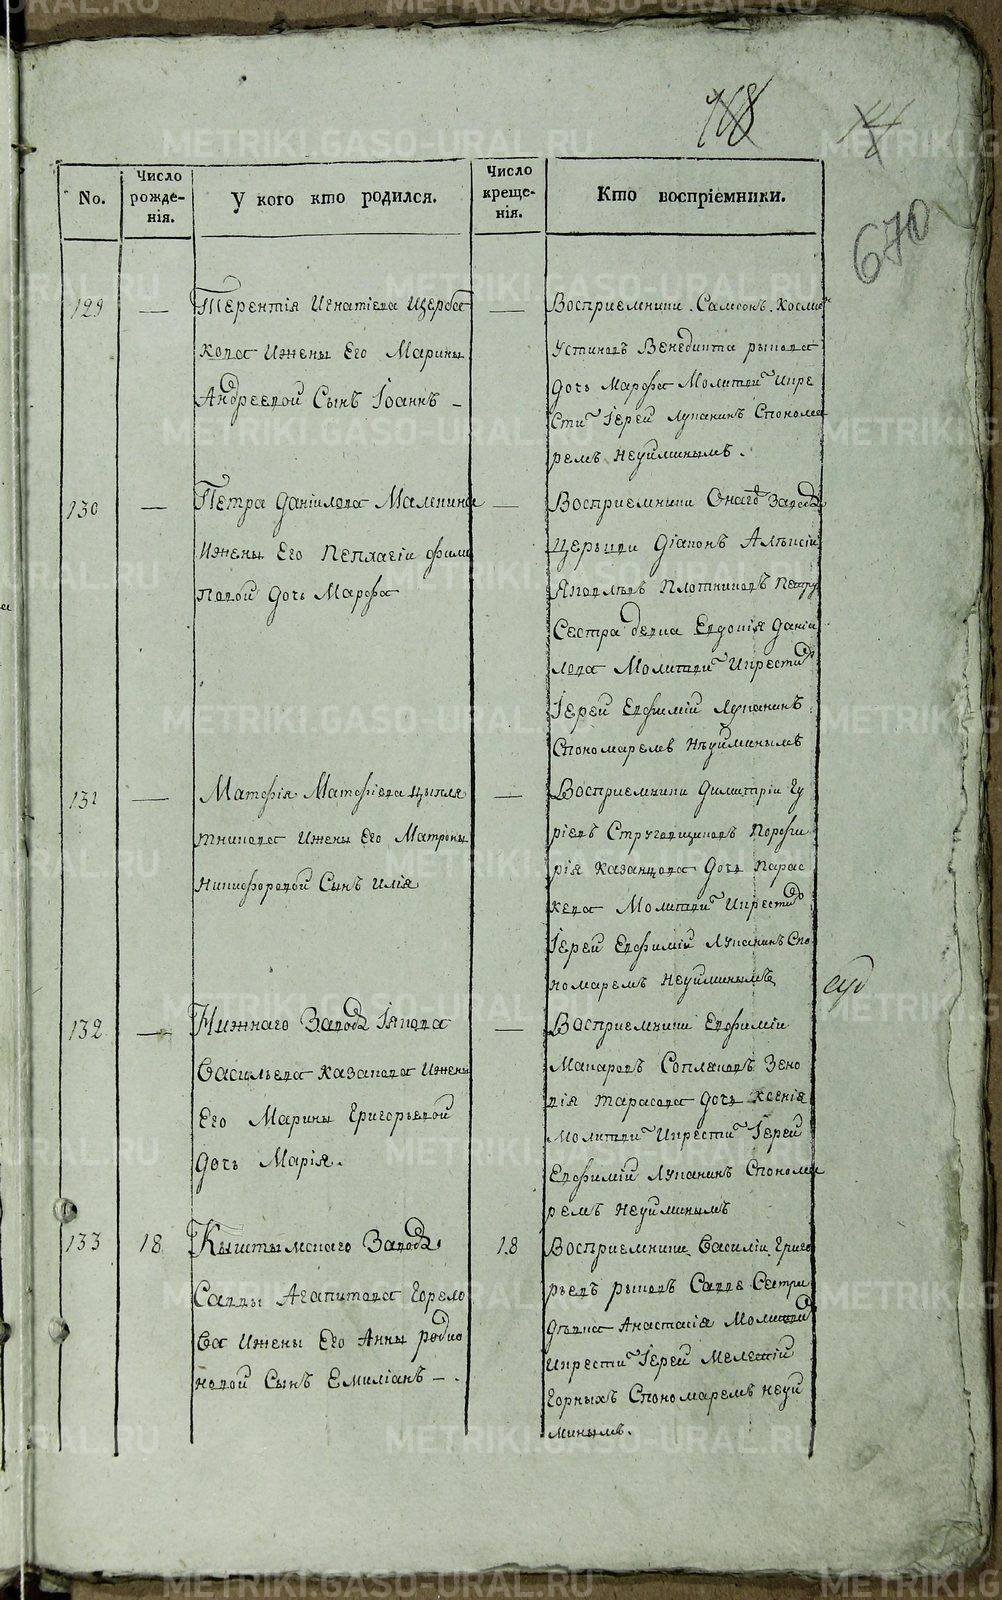 168
670
No.
Число рожденія.
У кого кто родился.
Число крещенія.
Кто воспріемники.
129
Терентія Игнатіева Щерба
кова Ижены Его Марины
Андреевой Сынъ Іоаннъ
Восприемники Самсонъ Косми
Устиновъ Венедикта рыкова
дочь Марфа Молитви Икре
сти Іерей Лупанинъ Спонома
ремъ Неуйминымъ.
130
Петра Даніилова Маленина
Ижены Его Пеллагіи фили
повой дочь Марфа
Восприемники Онаго Завода
церькви діаконъ Алѣксій
Яковлевъ Плотниковъ Петру
Сестра девка Евдокія Даніи
лова Молитви Икрести
Іерей Евфимій Лупанинъ
Спономаремъ Неуйминымъ
131
Матфія Матфіева Цыпля
тникова Ижены Его Матроны
Никифоровой Сынъ Илія
Восприемники Димитріи Гу
ріевъ Струговщиковъ Порфи
рія Казанцова дочь Парас
кева Молитви Икрести
Іерей Евфимій Лупанинъ Спо
номаремъ Неуйминымъ
132
Нижнаго Завода Іякова
Васильева Казакова Ижены
Его Марины Григорьевой
дочь Марія.
Восприемники Евфимій
Макаровъ Сопляковъ Зено
вія Тарасова дочь Ксенія
Молитви Икрести Іерей
Евфимій Лупанинъ Спонома
ремъ Неуйминымъ
133
18
Кыштымскаго Завода
Саввы Агапитова Горело
ва Ижены Его Анны родио
новой Сынъ Емиліанъ
18
Восприемники Василіи Григо
рьевъ рыковъ Савве Сестра
дѣвка Анастасія Молитви
Икрести Іерей Мелетій
Горныхъ Спономаремъ Неуй
минымъ.
METRIKI.GASO-URAL.RU